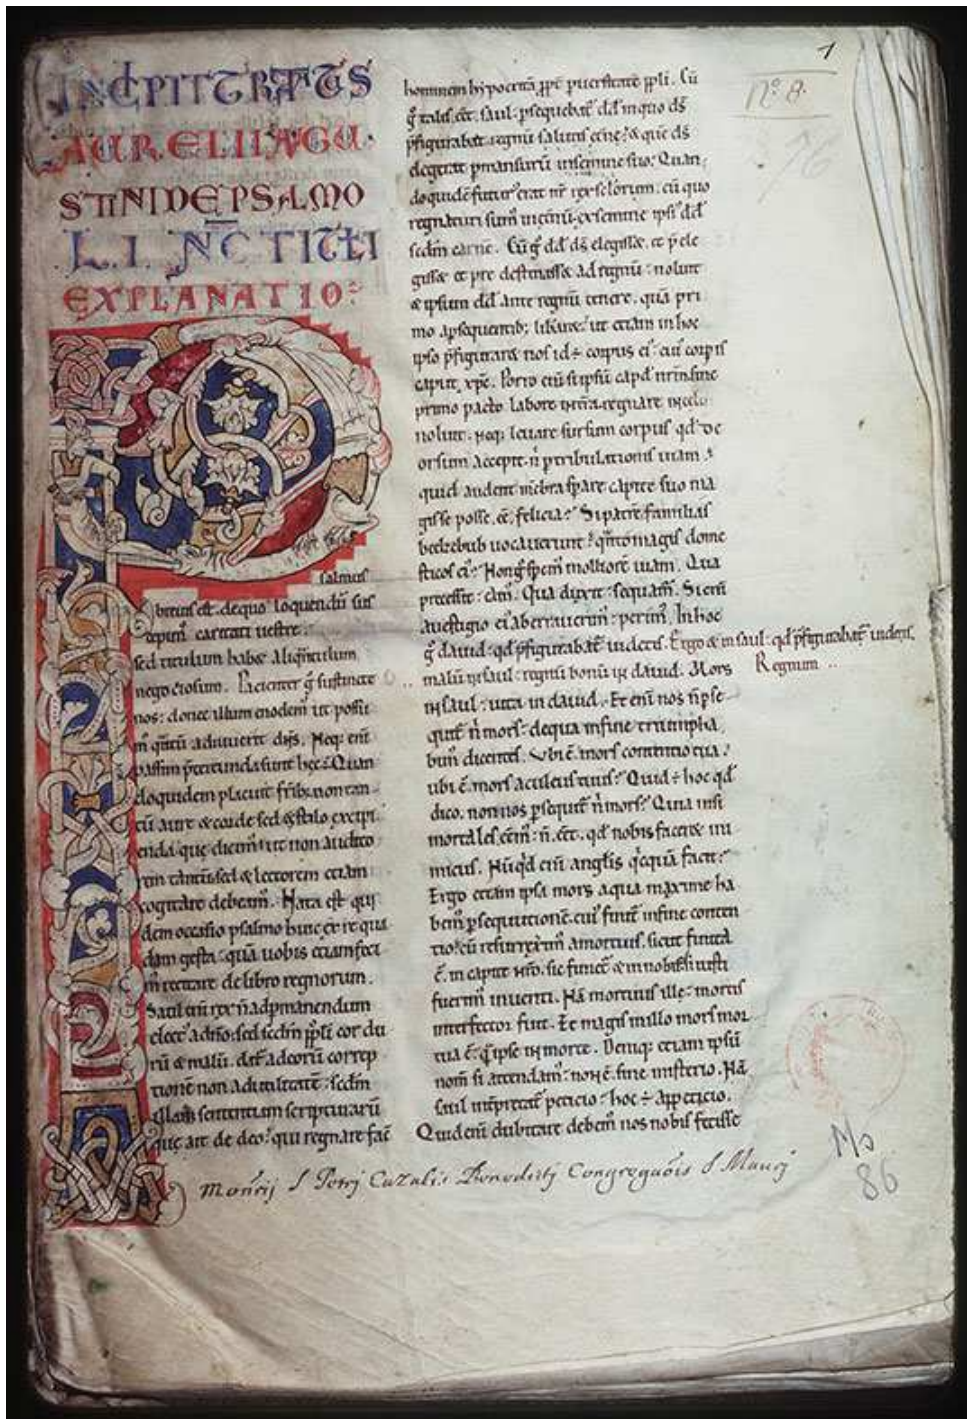 INCIPIT TRATATUS
AURELII AGU
STINI DE PSALMO
L.I. NC TITULI
EXPLANATIO:
Psalmus
breuis est. de quo loquendū sus
cepim' caritati uestre:
sed titulum habet aliqntulum
negotiosum. Patienter g̃ sustinete
nos: donec illum enodem' ut possu
m' q̄ntū adiuuerit dn̄s. Neq; eni
passim p̄tereunda sunt hec: Quan
doquidem placuit frīb; non tan
tū aure & corde sed & stilo excipi
enda que dicim': ut non audito
rem tantū sed & lectorem etiam
cogitare debeam'. Nata est qui
dem occasio psalmo huic ex re qua
dam gesta: quā uobis etiam feci
m' recitare de libro regnorum.
Saul eni rex ñ ad pmanendum
elect' a dn̄o: sed scdm ppli cor du
rū & malū. dat' ad eorū correp
tionē non ad utilitatē: scdm
illam sententiam scripturarū
que ait de deo: qui regnare fac̄
hominem hypocritā ppt̄ puersitatē ppli. Cū
g̃ talis eēt saul: psequebat' dd̄ in quo ds̄
p̄figurabat regnū salutis et̄ne: & quē ds̄
degerat pmansurū in semine suo: Quan
doquidē futur' erat nr̄ rex sc̄lorum. cū quo
regnaturi sum' in et̄nū. ex semine ipsi' dd̄
scdm carnē. Cū g̃ dd̄ ds̄ elegisset. et p̄ele
gisset et pre destinasset ad regnū: noluit
& ipsum dd̄ ante regnū tenere. quā pri
mo a psequentib; liƀaret: ut etiam in hoc
ipso p̄figuraret nos id÷ corpus ei': cui' corpis
caput xp̄c. Porro eni si ipsū capud nr̄m sine
primo pacto labore in t̄ra regnare in celo
noluit. neq; leuare sursum corpus qd̄ de
orsum accepit. n̄ p tribulationis uiam:
quid audent mēbra sperare capite suo ma
gis se posse. eē. felicia? Si patrē familias
beelzebub uocauerunt: q̄nto magis dome
sticos ei'? Non g̃ sperem' molliorē uiam. Qua
precessit: eam'. Qua duxit: sequam'. Si eni
a uestigio ei' aberrauerim': perim'. In hoc
g̃ dauid: qd̄ p̄figurabat' uidetis. Ergo & in saul: qd̄ p̄figurabat' uidetis.
malū in saul: regnū bonū in dauid. Mors Regnum ..
in saul: uita in dauid. Et eni nos n̄ pse
quit' n̄ mors: de qua in fine triumpha
bim' dicentes. Ubi ē mors contentio tua?
ubi ē mors aculeus tuus? Quid ÷ hoc qd̄
dico. non nos psequit' n̄ mors? Quia nisi
mortales eēm': n̄. eēt. qd̄ nobis faceret ini
micus. Nūq̄d eni anglis q̄cquā facit?
Ergo etiam ipsa mors a qua maxime ha
bem' psequutionē. cui' finit' in fine conten
tio: cū resurrexerim' a mortuis. sicut finita
ē. in capite nr̄o. sic finiet' & in nobis si iusti
fuerim' inuenti. Nā mortuus ille: mortis
interfector fuit. Et magis in illo mors mor
tua ē: q̄ ipse in morte. Deniq; etiam ipsū
nom̄ si attendam': non ē. sine misterio. Nā
saul int̄pretat' petitio: hoc ÷ appetitio.
Quid eni dubitare debem' nos nobis fecisse
Mon̄rij S Petrj Cazalis Benedictj Congregaōis S Maurj
1
nº. 8.
76
Ms
86